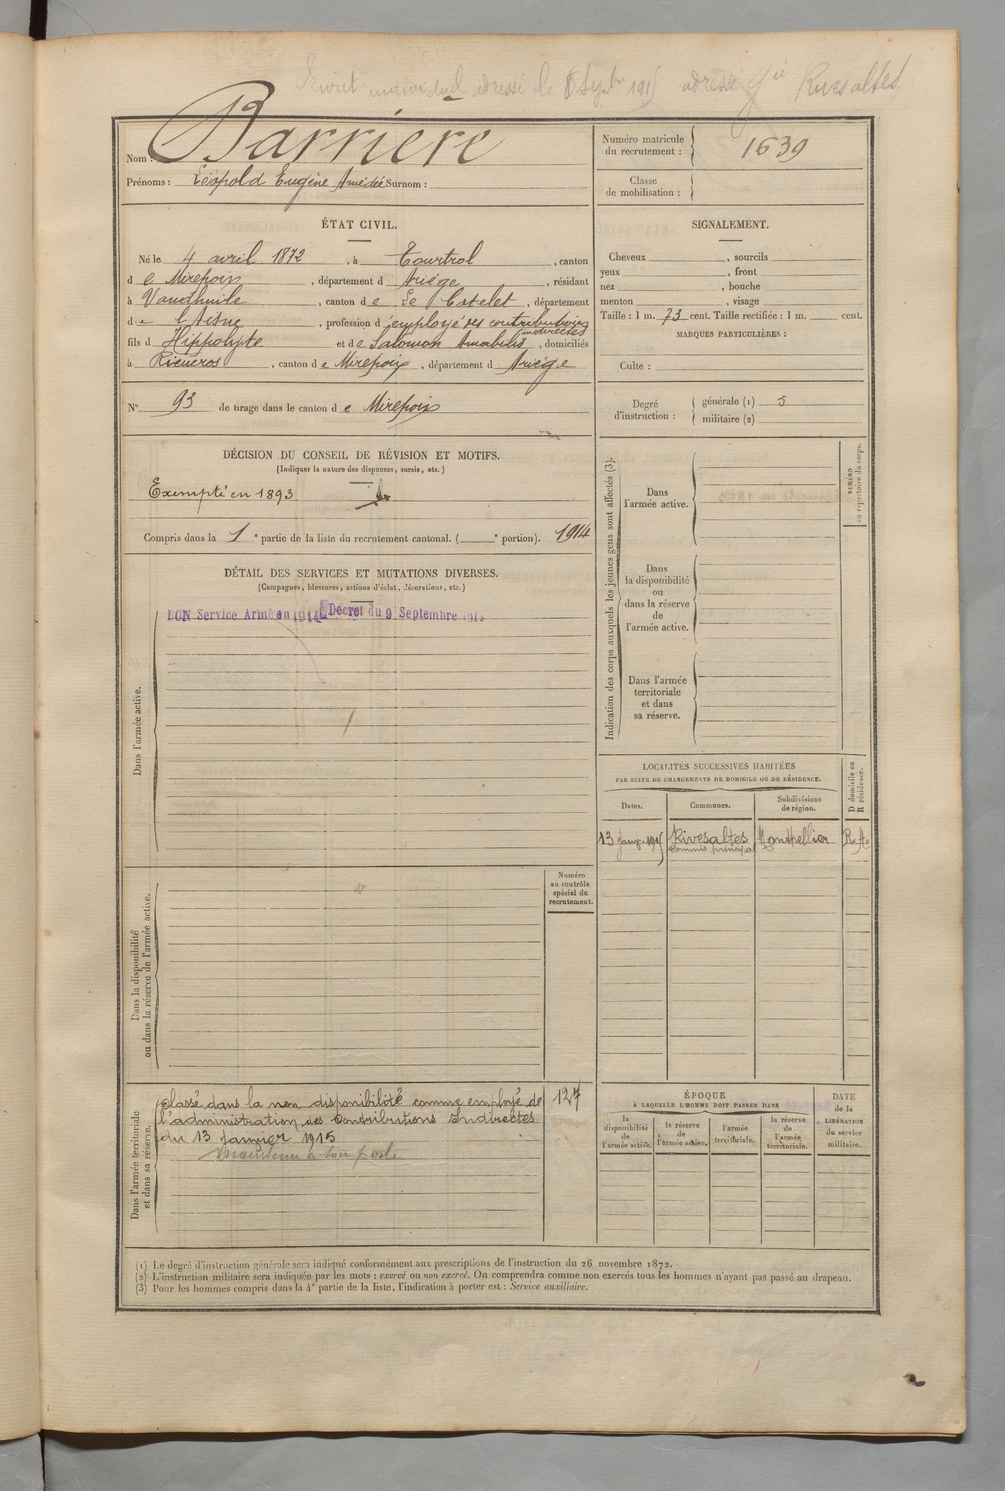 Livret individuel adressé le 6 Septbre 1915 adresse Rivesaltes
Nom : Barrière
Prénoms : Léopold Eugène Amédée Surnom :
Numéro matricule du recrutement : 1639
Classe de mobilisation :
ÉTAT CIVIL.
Né le 4 avril 1872, à Tourtrol, canton
de Mirepoix, département d Ariège, résidant
à Vaudhuile, canton de Le Catelet, département
de l'Aisne, profession d employé des contributions indirectes
fils d Hippolyte et de Salomon Amabilis, domiciliés
à Rieucros, canton de Mirepoix, département d Ariège
N° 93 de tirage dans le canton de Mirepoix
SIGNALEMENT.
Cheveux , sourcils
yeux , front
nez , bouche
menton , visage
Taille : 1 m. 73 cent. Taille rectifiée : 1 m. cent.
MARQUES PARTICULIÈRES :
Culte :
Degré d'instruction : générale (1) 3
militaire (2)
DÉCISION DU CONSEIL DE RÉVISION ET MOTIFS.
(Indiquer la nature des dispenses, sursis, etc.)
Exempté en 1893
Compris dans la 1e partie de la liste du recrutement cantonal. ( e portion). 1914
DÉTAIL DES SERVICES ET MUTATIONS DIVERSES.
(Campagnes, blessures, actions d'éclat, décorations, etc.)
Dans l'armée active.
BON Service Armé en 1914 Décret du 9 Septembre 1914
Dans la disponibilité
ou dans la réserve de l'armée active.
Numéro
au contrôle
spécial du
recrutement.
Dans l'armée territoriale
et dans sa réserve.
Classé dans la non disponibilité comme employé de
l'administration des Contributions Indirectes
du 13 Janvier 1915
maintenu à son poste
127
Indication des corps auxquels les jeunes gens sont affectés (3).
Dans
l'armée active.
Dans
la disponibilité
ou
dans la réserve
de
l'armée active.
Dans l'armée
territoriale
et dans
sa réserve.
NUMÉRO
au répertoire du corps.
LOCALITÉS SUCCESSIVES HABITÉES
PAR SUITE DE CHANGEMENTS DE DOMICILE OU DE RÉSIDENCE.
Dates. Communes. Subdivisions de région. D domicile ou R résidence.
13 Janv. 1915 Rivesaltes Montpellier
commis principal
ÉPOQUE
À LAQUELLE L'HOMME DOIT PASSER DANS
la disponibilité de l'armée active.
la réserve de l'armée active.
l'armée territoriale.
la réserve de l'armée territoriale.
DATE
de la
LIBÉRATION
du service
militaire.
(1) Le degré d'instruction générale sera indiqué conformément aux prescriptions de l'instruction du 26 novembre 1872.
(2) L'instruction militaire sera indiquée par les mots : exercé ou non exercé. On comprendra comme non exercés tous les hommes n'ayant pas passé au drapeau.
(3) Pour les hommes compris dans la 4e partie de la liste, l'indication à porter est : Service auxiliaire.